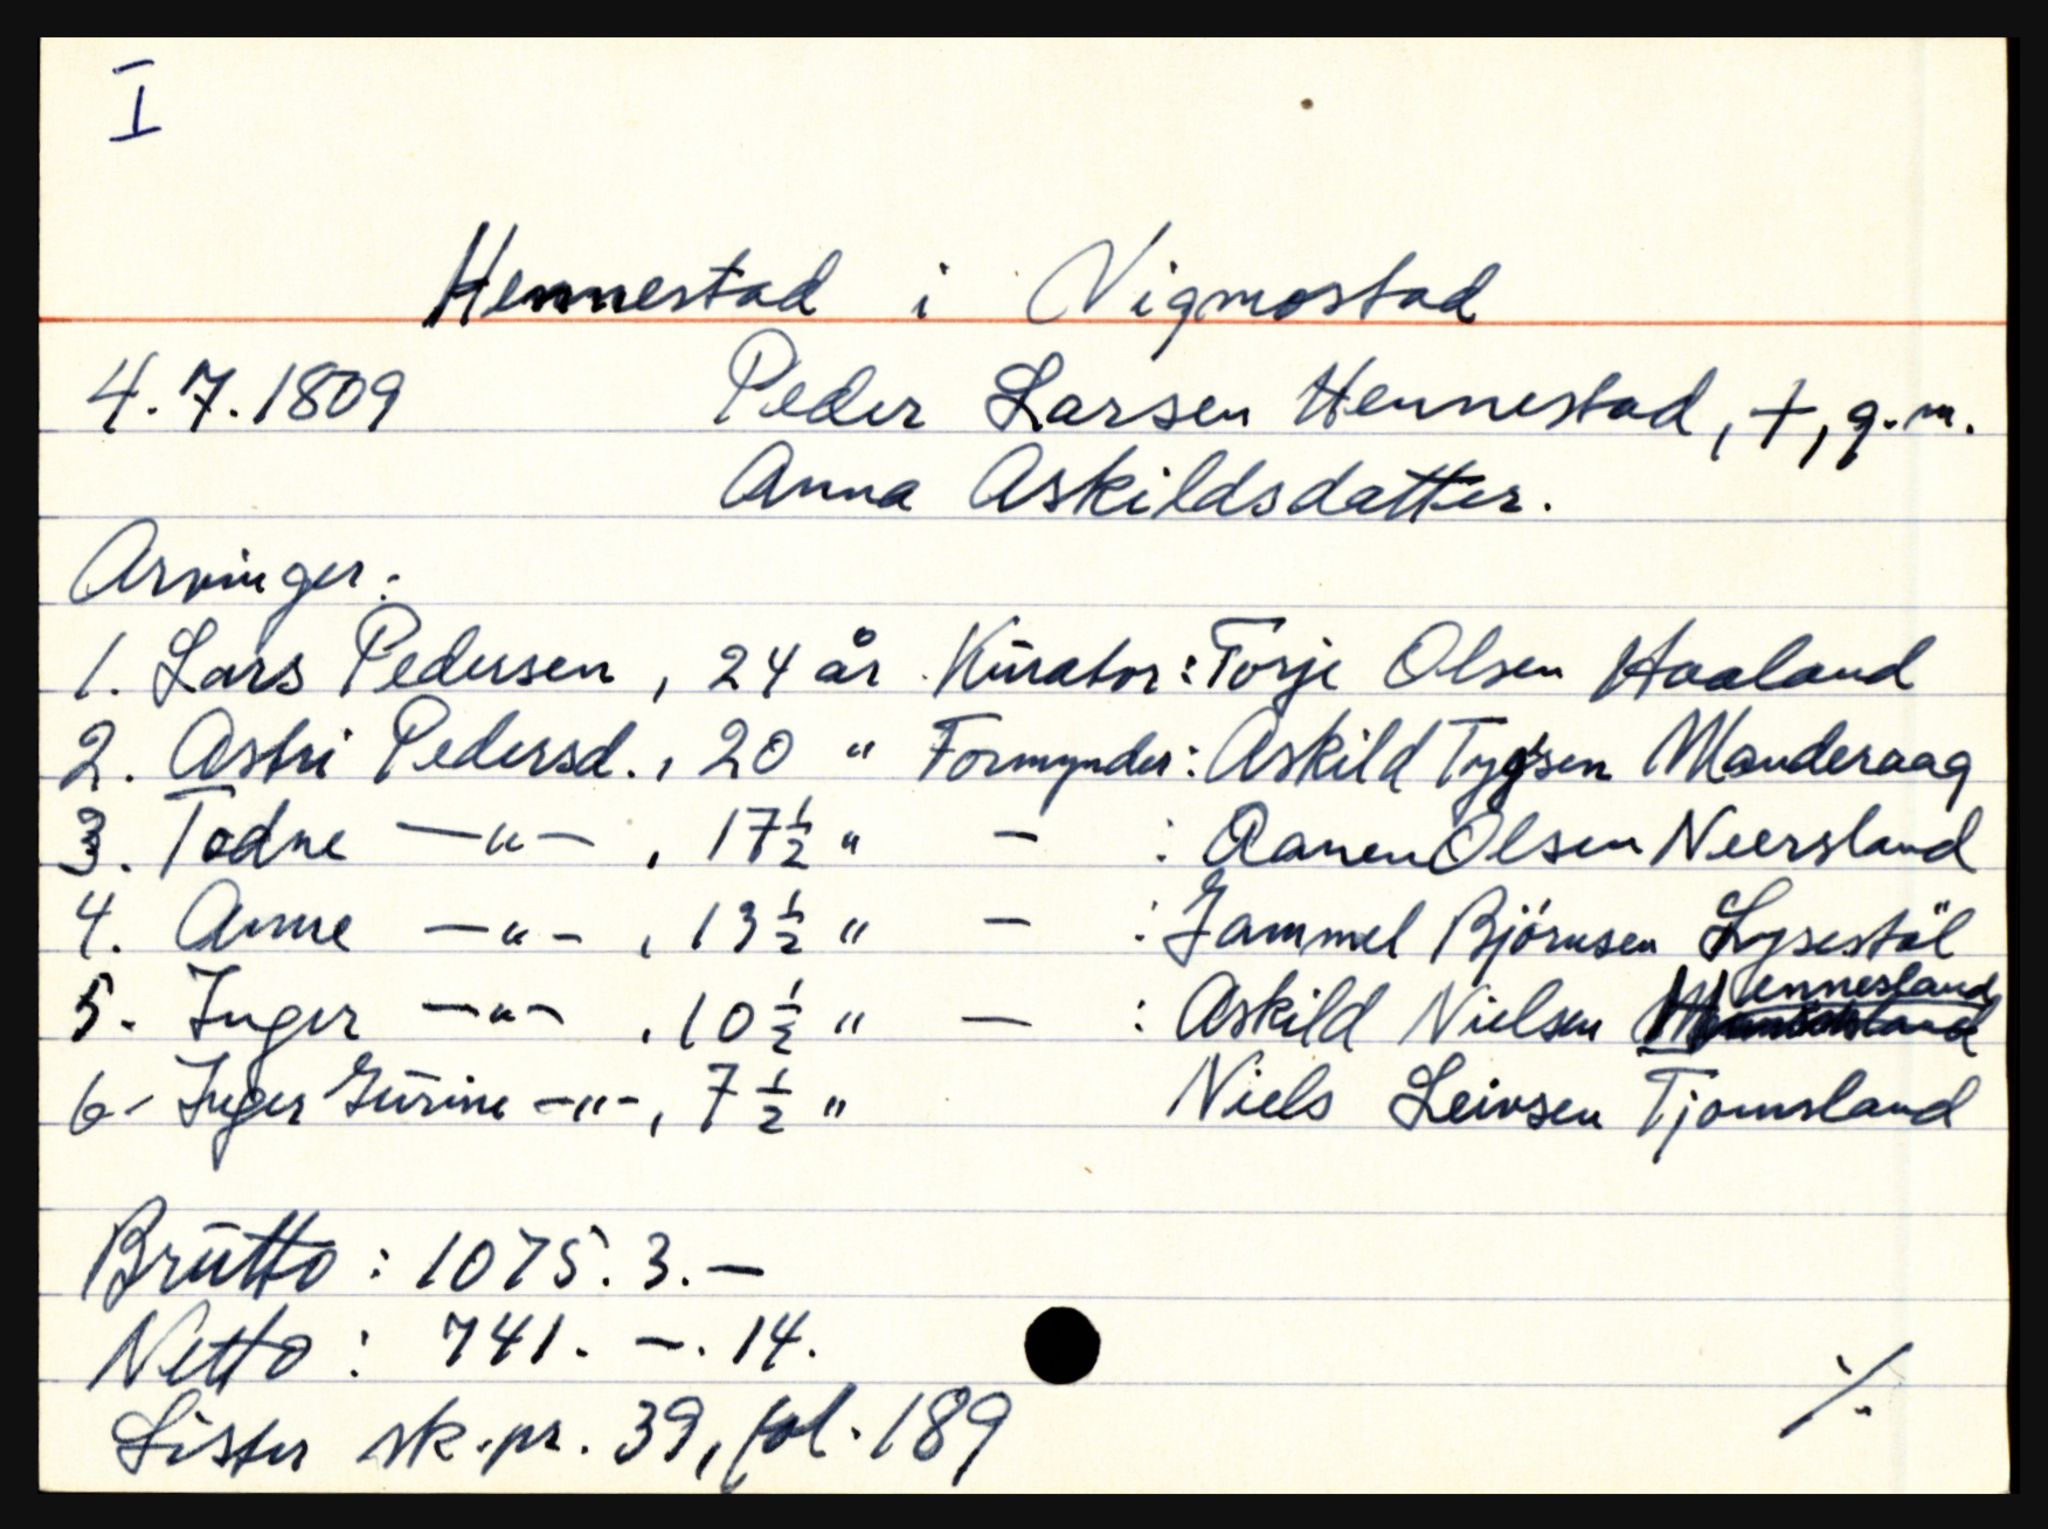 I
Hennestad i Vigmostad
4.7.1809 Peder Larsen Hennestad, +, g.m.
Anna Askildsdatter.
Arvinger:
1. Lars Pedersen, 24 år. Kurator: Torje Olsen Haaland
2. Astri Pedersd., 20 " Formynder: Askild Tygesen Manderaag
3. Todne —"— , 17½ " — : Aanen Olsen Neersland
4. Anne —"— , 13½ " — : Gammel Bjørnsen Lysestöl
5. Inger —"— , 10½ " — : Askild Nielsen Mennesland
6. Inger Gurine —"—, 7½ " Niels Leivsen Tjomsland
Brutto: 1075.3.—
Netto: 741. —. 14.
Lister sk.pr. 39, fol. 189
./.